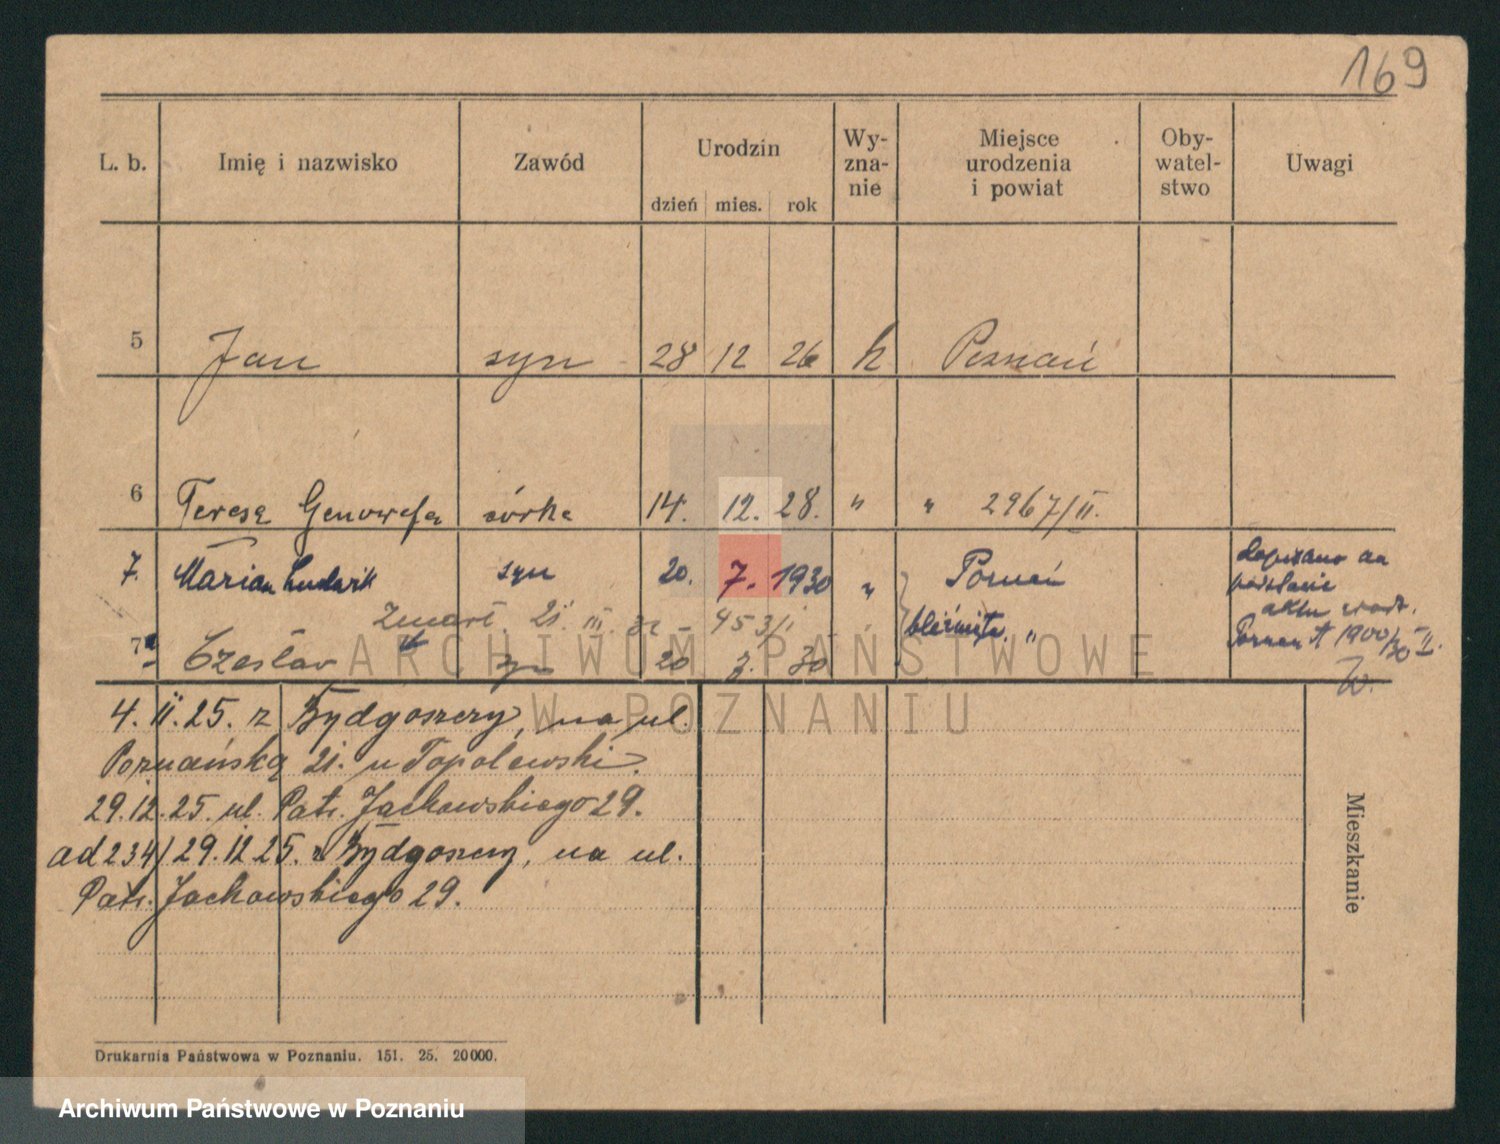 169
L. b. Imię i nazwisko Zawód Urodzin Wy-zna-nie Miejsce urodzenia i powiat Oby-watel-stwo Uwagi
dzień mies. rok
5 Jan syn 28 12 26 k Poznań
6 Teresa Genowefa córka 14. 12. 28. " " 2967/II.
7. Marian Ludwik syn 20. 7. 1930 " Poznań
dopisano na
podstawie
aktu urodz.
Poznan 1900/30 II.
Zmarł. 21. III. 453/I
bliźnięta "
7 Czesław syn 20 7. 30
ARCHIWUM PAŃSTWOWE
W POZNANIU
4. II. 25. z Bydgoszczy, na ul.
Poznańską 21. u Topolewski.
29.12.25. ul. Patr. Jackowskiego 29.
ad 234/29.12.25. z Bydgoszczy, na ul.
Patr. Jackowskiego 29.
Mieszkanie
Drukarnia Państwowa w Poznaniu. 151. 25. 20000.
Archiwum Państwowe w Poznaniu